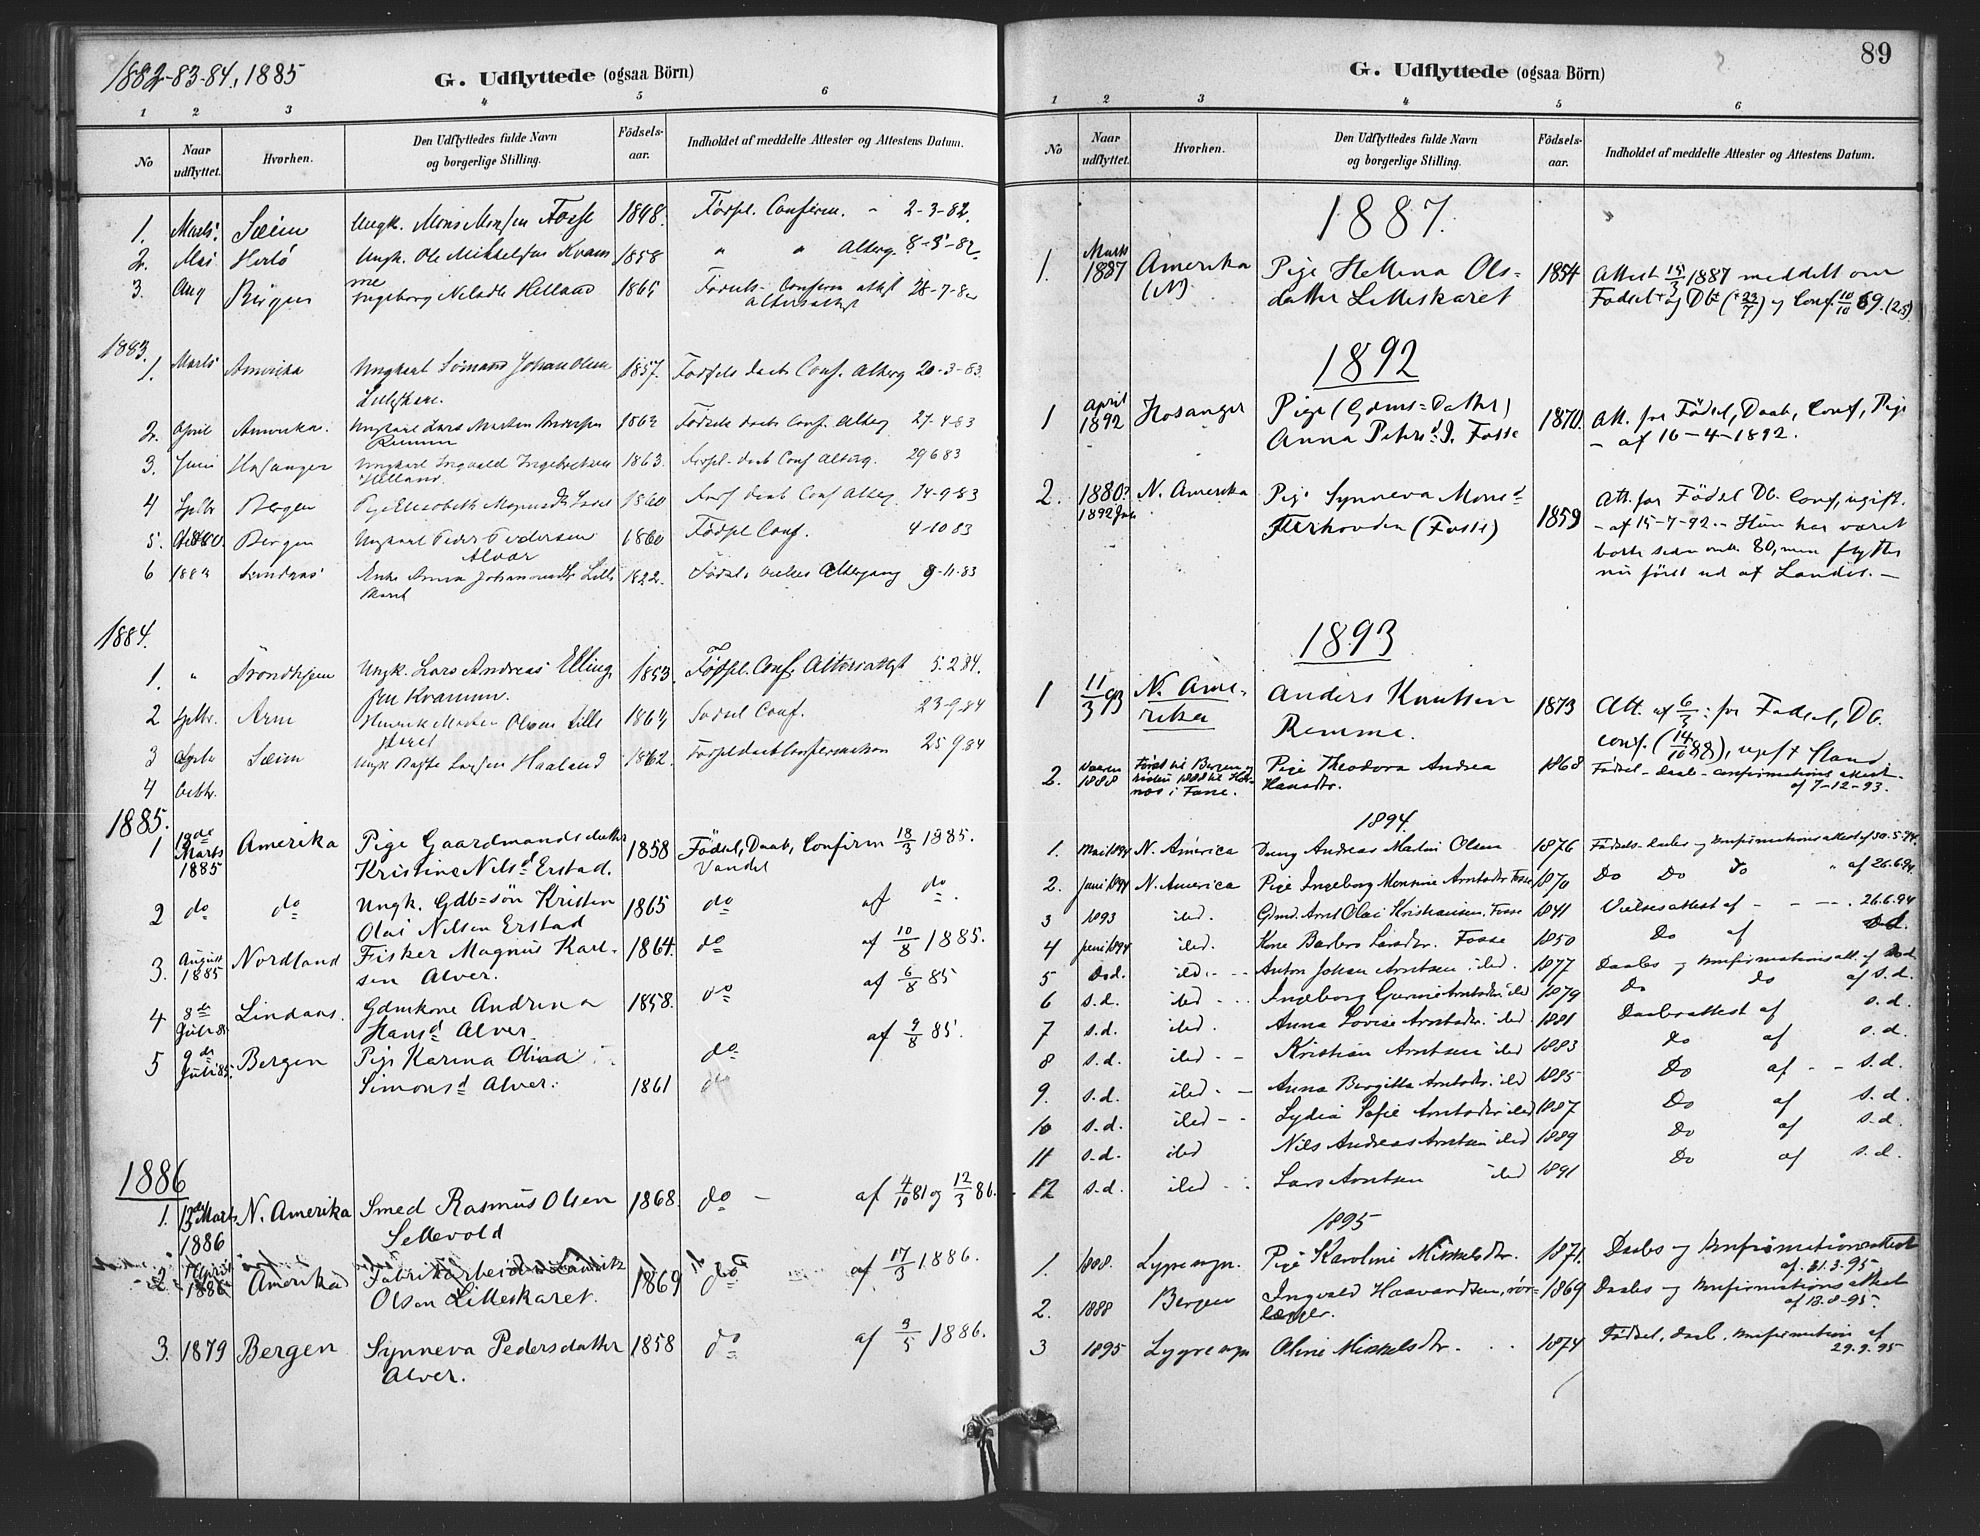 1882-83-84, 1885
G. Udflyttede (ogsaa Börn)
1 2 3 4 5 6
No
Naar udflyttet.
Hvorhen.
Den Udflyttedes fulde Navn og borgerlige Stilling.
Födsels-aar.
Indholdet af meddelte Attester og Attestens Datum.
1. Marts. Sæim Ungk. Mons Monsen Fosse 18 8. Fødsl. Confirm. 2-3-82.
2. Mai Herlö Ungk. Ole Mikkelsen Kvam 1858 " " Alterg. 8-5-82
3. Aug Ingeborg Helland 186 Confirm attst 28-7-82
Altersattst
1883.
1. Marts Amerika Ungkarl Johan Olsen 1857. Fødsels daab Conf. Alterg 20-3-83.
Lilleskare.
2. April Amerika. Ungkarl Lars Martin Andersen 186 Fødsels daab Conf. Alterg 27-4-83
Remme
3. Juni Hosanger Ungkarl Ingvald Ingebretsen 1863. Fødsl-daab Conf Alterg. 29 6 83
Helland.
4 Sptbr Bergen Pige Elisabeth 1860 Daab Conf Alterg 14-9-83
5. Bergen Ungkarl Peder Pedersen 1860 Födsel Conf. 4-10 83
Alvær
6 188 Lindaas Enke Anna Johannesdtr Lille 1822. Födsels Altergang 9-11-83
skaret
1884.
1. " Trondhjem Ungk. Lars Andreas Elling 1853. Födsel. Conf. Altersattst 5.2.84.
sen Kvamm.
2 Sptbr. Arne Olsen Lille 186 Födsel Conf. 23-9.84
skaret
3 Sæim Ungk Haaland 1862. Födsel daab Confirmation 25 9 84
4 Octbr.
1885.
1 19de Marts 1885 Amerika Pige Gaardmandsdatter 1858 Födsel, Daab, Confirm 18/3 1885.
Kristine Nilsd Erstad. Vandel
2 do do Ungk. Gdb=sön Kristen 1865 do af do.
Olai Nilsen Erstad
3. August 1885 Nordland Fisker Magnus Karl- 1864. do af 10/8 1885.
sen Alver.
4 8de Juli 85 Lindaas. Gdmkone Andrina 1858. do af 6/8 85
Hansd Alver.
5 9de Juli 85. Bergen Pige Karina Olina do af 9/8 85.
Simonsd Alver. 1861 do
1886
1. Marts 1886 N. Amerika Smed Rasmus Olsen 1868. do - af 4/10 81 og 12/3 86.
Sellevold
2 April 1886 Amerika Fabrikarbeider 1869 do af 17/3 1886.
Olsen Lilleskaret.
3. 1879 Bergen Synneva Pedersdatter 1858 do af 3/5 1886.
Alver.
89
G. Udflyttede (ogsaa Börn)
1 2 3 4 5 6
No
Naar udflyttet.
Hvorhen.
Den Udflyttedes fulde Navn og borgerlige Stilling.
Födsels-aar.
Indholdet af meddelte Attester og Attestens Datum.
1887.
1. Marts 1887 Amerika (N) Pige Hellina Ols- 1854 Attest 15/3 1887 meddelt om
datter Lilleskaret Födsel og Db (22/7) og Conf. 10/10 69. (2,5)
1892
1 April 1892 Hosanger Pige (Gdms=Datter) 1870. Att. for Födsel, Daab, Conf, Pige
Anna Petersd. J. Fosse - af 16-4-1892.
2. 1880? 1892 N. Amerika Pige Synneva Monsd 1859 Att. for Födsel Db. Conf, ugift.
(Fosse) - af 15-7-92. - Hun har været
borte siden 80, men flyttes
nu först ud af Landet. -
1893
1 11/3 93 N. Ame-rika Anders Knutsen 1873 Att. af 6/3: for Födsel, Db.
Remme. conf. (14/10 88), ugift Stand.
2. Vaaren 1888 Først til Bergen og siden 1888 til i Fane. Pige Theodora Andrea 1868 Födsel-daabs-confirmations attest-
Hansdtr. af 7-12-93.
1894.
1. Mai 1894 N. America Dreng Andreas Martin Olsen 1876 Födsels-daabs og konfirmationsattest af 30.5.94.
2. Juni 1894 N. America Pige Ingeborg Monsine Arntsdtr Fosse 1870 Do Do Do " af 26.6.94.
3 1893 iled. Gdmd. Arnt Olai Kristiansen. Fosse 1841 Vielsesattest af - - - 26.6.94
4 Juni 1894 iled. Kone Barbro Larsdtr. Fosse 1850 Do af s.d.
5 s.d. iled. - - Anton Johan Arntsen iled. 1877 Daabs og konfirmationsatt. af s.d.
6 s.d. iled - - Ingeborg Arntsdtr. iled 1879 Do do af s.d.
7 s.d. iled. Anna Lovise Arntsdtr. iled 1881 Daabsattest af s.d.
8 s.d. iled - - Kristian Arntsen iled 1883 Do af s.d.
9. s.d. iled - - Anna Bergitta Arntsdtr. iled 1885 Do af - - s.d.
10 s.d. iled - - Lydia Sofie Arntsdtr iled 1887 Do af s.d.
11 s.d. iled Nils Andreas Arntsen iled 1889 Do af s.d.
12 s.d. iled - Lars Arntsen iled 1891 Do af s.d.
1895
1. 1888. Lygresogn. Pige Karoline Mikkelsdtr. 1871. Daabs og konfirmationsattest
af 31.3.95
2. 1888 Bergen Ingvald Haavardsen, rør- 1869 Daabs og konfirmationsattest
lægger. af 13.8-95.
3 1895 Lygresogn Oline Mikkelsdtr. - - 1874 Födsel, daab, konfirmation af
29.9.95